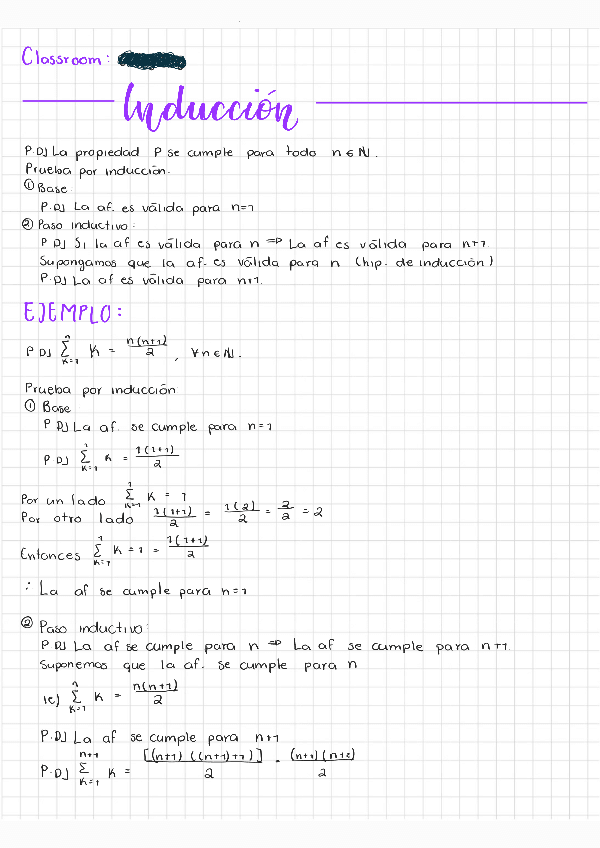 Classroom:
Inducción
P.DJ La propiedad P se cumple para todo n ∈ ℕ.
Prueba por inducción.
① Base:
P.DJ La af. es válida para n=1
② Paso inductivo:
P DJ Si la af es válida para n ⇒ La af es válida para n+1.
Supongamos que la af. es válida para n (hip. de inducción)
P.DJ La af es válida para n+1.
EJEMPLO:
P DJ ∑_{K=1}^{n} K = n(n+1)/2, ∀ n ∈ ℕ.
Prueba por inducción
① Base
P DJ La af. se cumple para n=1
P DJ ∑_{K=1}^{1} K = 1(1+1)/2
Por un lado ∑_{K=1}^{1} K = 1
Por otro lado 1(1+1)/2 = 1(2)/2 = 2/2 = 2
Entonces ∑_{K=1}^{1} K = 1 = 1(1+1)/2
∴ La af se cumple para n=1
② Paso inductivo:
P DJ La af se cumple para n ⇒ La af se cumple para n+1.
Suponemos que la af. se cumple para n
ie) ∑_{K=1}^{n} K = n(n+1)/2
P.DJ La af se cumple para n+1
P.DJ ∑_{K=1}^{n+1} K = [(n+1)((n+1)+1)]/2 = (n+1)(n+2)/2